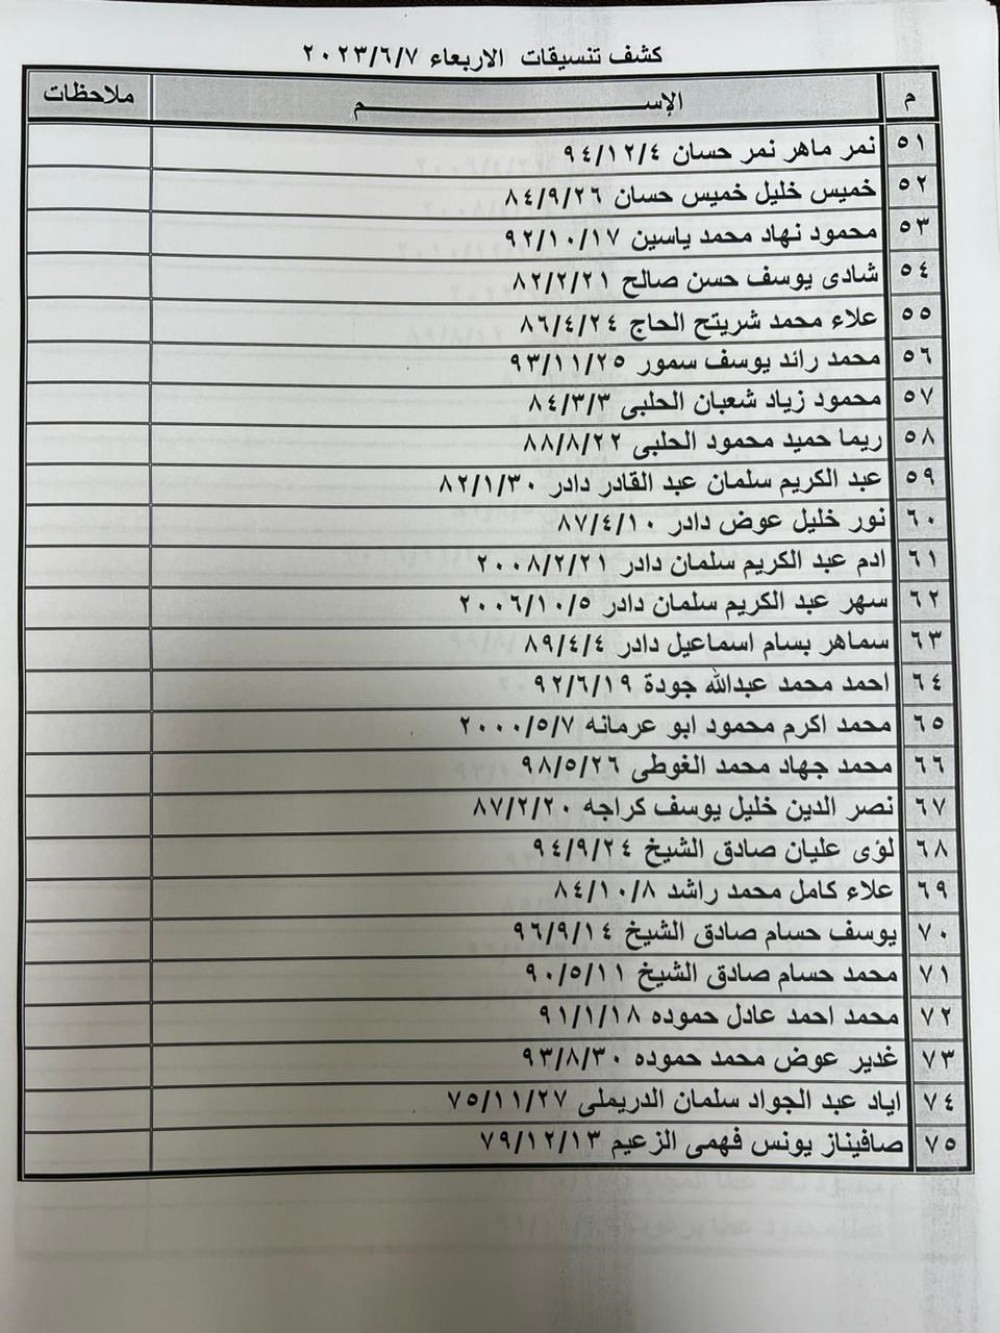 كشف تنسيقات الاربعاء ٢٠٢٣/٦/٧
م الإســـم ملاحظات
٥١ نمر ماهر نمر حسان ٩٤/١٢/٤
٥٢ خميس خليل خميس حسان ٨٤/٩/٢٦
٥٣ محمود نهاد محمد ياسين ٩٢/١٠/١٧
٥٤ شادى يوسف حسن صالح ٨٢/٢/٢١
٥٥ علاء محمد شريتح الحاج ٨٦/٤/٢٤
٥٦ محمد رائد يوسف سمور ٩٣/١١/٢٥
٥٧ محمود زياد شعبان الحلبى ٨٤/٣/٣
٥٨ ريما حميد محمود الحلبى ٨٨/٨/٢٢
٥٩ عبد الكريم سلمان عبد القادر دادر ٨٢/١/٣٠
٦٠ نور خليل عوض دادر ٨٧/٤/١٠
٦١ ادم عبد الكريم سلمان دادر ٢٠٠٨/٢/٢١
٦٢ سهر عبد الكريم سلمان دادر ٢٠٠٦/١٠/٥
٦٣ سماهر بسام اسماعيل دادر ٨٩/٤/٤
٦٤ احمد محمد عبدالله جودة ٩٢/٦/١٩
٦٥ محمد اكرم محمود ابو عرمانه ٢٠٠٠/٥/٧
٦٦ محمد جهاد محمد الغوطى ٩٨/٥/٢٦
٦٧ نصر الدين خليل يوسف كراجه ٨٧/٢/٢٠
٦٨ لؤى عليان صادق الشيخ ٩٤/٩/٢٤
٦٩ علاء كامل محمد راشد ٨٤/١٠/٨
٧٠ يوسف حسام صادق الشيخ ٩٦/٩/١٤
٧١ محمد حسام صادق الشيخ ٩٠/٥/١١
٧٢ محمد احمد عادل حموده ٩١/١/١٨
٧٣ غدير عوض محمد حموده ٩٣/٨/٣٠
٧٤ اياد عبد الجواد سلمان الدريملى ٧٥/١١/٢٧
٧٥ صافيناز يونس فهمى الزعيم ٧٩/١٢/١٣